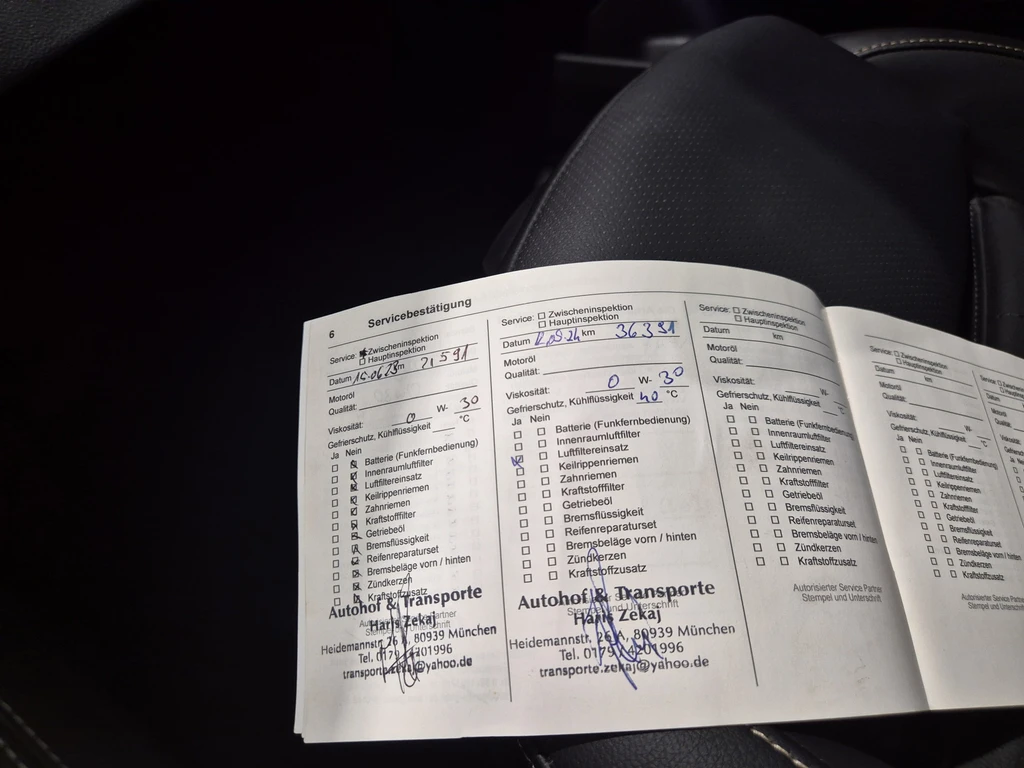 6 Servicebestätigung
Service: Zwischeninspektion
Hauptinspektion
Datum 15.06.23 km 21591
Motoröl
Qualität:
Viskosität: 0 W- 30
Gefrierschutz, Kühlflüssigkeit °C
Ja Nein
Batterie (Funkfernbedienung)
Innenraumluftfilter
Luftfiltereinsatz
Keilrippenriemen
Zahnriemen
Kraftstofffilter
Getriebeöl
Bremsflüssigkeit
Reifenreparaturset
Bremsbeläge vorn / hinten
Zündkerzen
Kraftstoffzusatz
Autohof & Transporte
Haris Zekaj
Heidemannstr. 26 A, 80939 München
Tel. 0179 4201996
transporte.zekaj@yahoo.de
Service: Zwischeninspektion
Hauptinspektion
Datum 12.09.24 km 36391
Motoröl
Qualität:
Viskosität: 0 W- 30
Gefrierschutz, Kühlflüssigkeit 40 °C
Ja Nein
Batterie (Funkfernbedienung)
Innenraumluftfilter
Luftfiltereinsatz
Keilrippenriemen
Zahnriemen
Kraftstofffilter
Getriebeöl
Bremsflüssigkeit
Reifenreparaturset
Bremsbeläge vorn / hinten
Zündkerzen
Kraftstoffzusatz
Autohof & Transporte
Stempel und Unterschrift
Haris Zekaj
Heidemannstr. 26 A, 80939 München
Tel. 0179 4201996
transporte.zekaj@yahoo.de
Service: Zwischeninspektion
Hauptinspektion
Datum km
Motoröl
Qualität:
Viskosität: W-
Gefrierschutz, Kühlflüssigkeit °C
Ja Nein
Batterie (Funkfernbedienung)
Innenraumluftfilter
Luftfiltereinsatz
Keilrippenriemen
Zahnriemen
Kraftstofffilter
Getriebeöl
Bremsflüssigkeit
Reifenreparaturset
Bremsbeläge vorn / hinten
Zündkerzen
Kraftstoffzusatz
Autorisierter Service Partner
Stempel und Unterschrift
Service: Zwischeninspektion
Hauptinspektion
Datum km
Motoröl
Qualität:
Viskosität: W-
Gefrierschutz, Kühlflüssigkeit °C
Ja Nein
Batterie (Funkfernbedienung)
Innenraumluftfilter
Luftfiltereinsatz
Keilrippenriemen
Zahnriemen
Kraftstofffilter
Getriebeöl
Bremsflüssigkeit
Reifenreparaturset
Bremsbeläge vorn / hinten
Zündkerzen
Kraftstoffzusatz
Autorisierter Service Partner
Stempel und Unterschrift
Service:
Datum
Motoröl
Qualität:
Ja